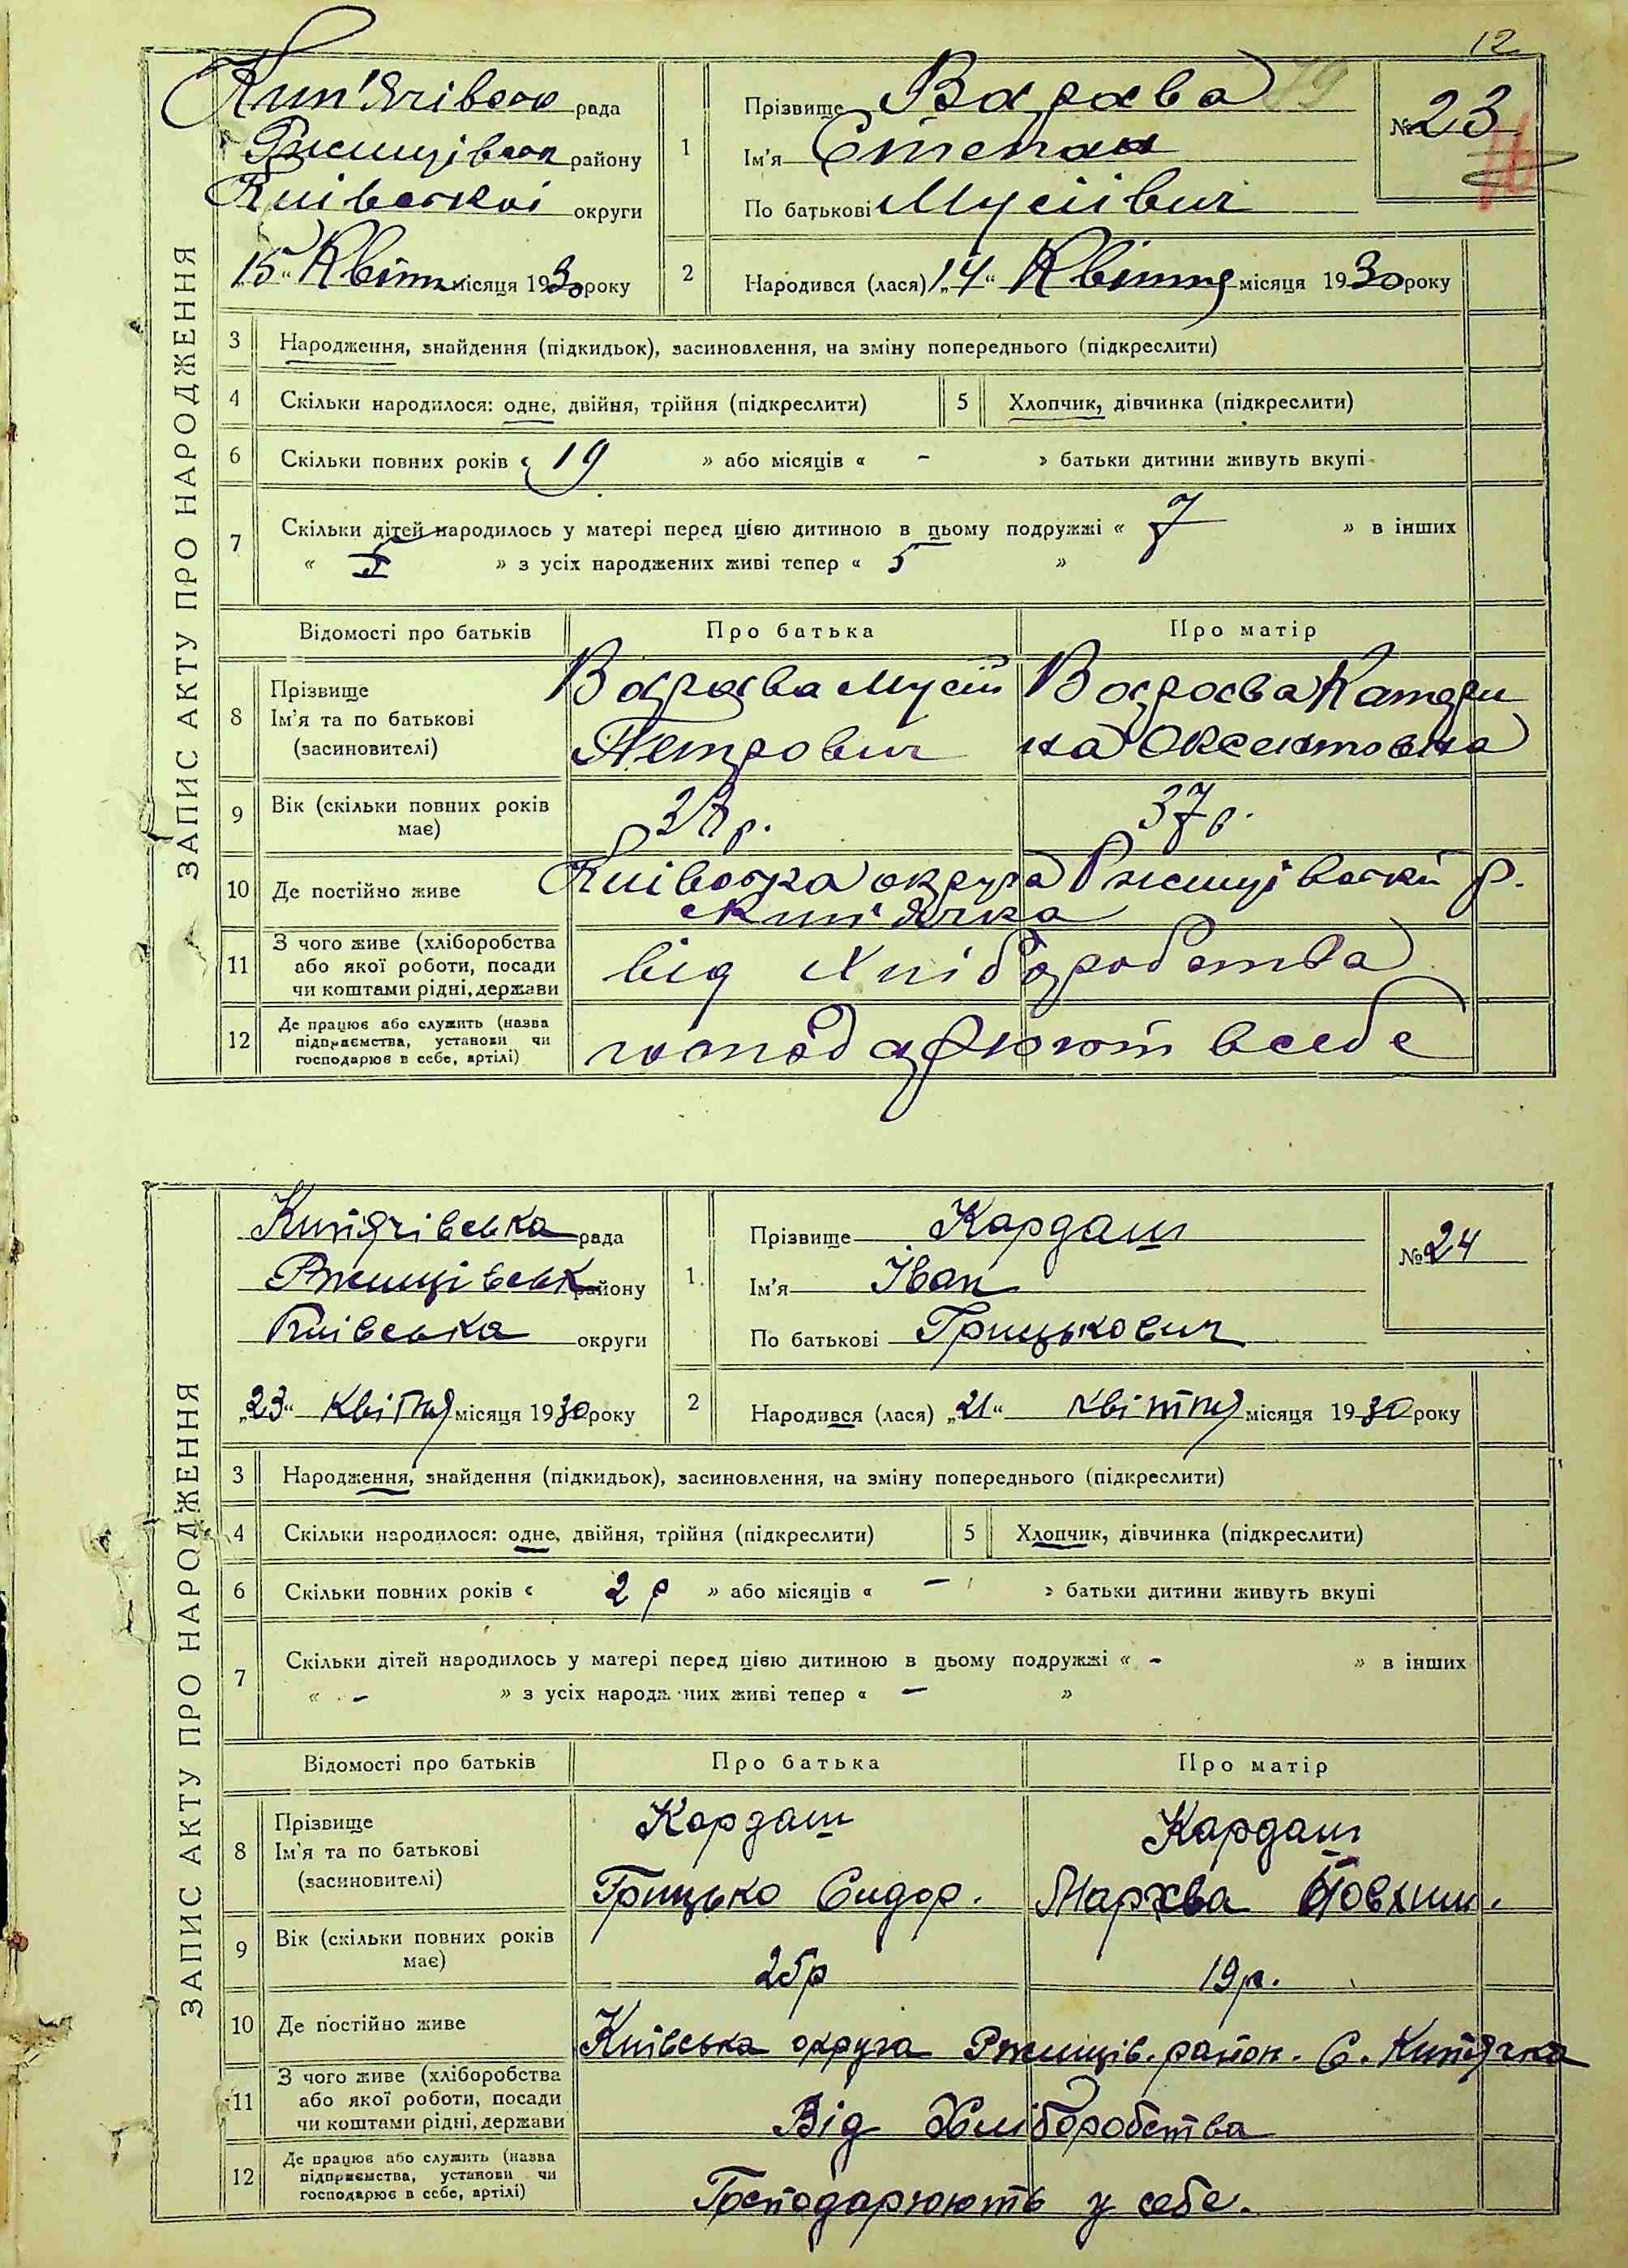 12
ЗАПИС АКТУ ПРО НАРОДЖЕННЯ
Кип'ячівська рада
Ржищівськ району
Київської округи
„15“ Квітня місяця 1930 року
1
Прізвище Варава
Ім'я Степан
По батькові Мусіївич
№ 23
2
Народився (лася) „14“ Квітня місяця 1930 року
3 Народження, знайдення (підкидьок), засиновлення, на зміну попереднього (підкреслити)
4 Скільки народилося: одне, двійня, трійня (підкреслити)
5 Хлопчик, дівчинка (підкреслити)
6 Скільки повних років « 19 » або місяців « - » батьки дитини живуть вкупі
7 Скільки дітей народилось у матері перед цією дитиною в цьому подружжі « 7 » в інших
« » з усіх народжених живі тепер « 5 »
Відомості про батьків Про батька Про матір
8 Прізвище
Ім'я та по батькові
(засиновителі)
Варава Мусій
Петрович
Варава Катери
на Оксентовна
9 Вік (скільки повних років
має)
37 р.
10 Де постійно живе
Київська округа Ржищівський р.
Кип'ячка
11 З чого живе (хліборобства
або якої роботи, посади
чи коштами рідні, держави
від Хліборобства
12 Де працює або служить (назва
підприємства, установи чи
господарює в себе, артілі)
господарюют всебе
ЗАПИС АКТУ ПРО НАРОДЖЕННЯ
Кип'ячівська рада
Ржищівськ району
Київська округи
„23“ Квітня місяця 1930 року
1.
Прізвище Кардаш
Ім'я Іван
По батькові Грицькович
№ 24
2
Народився (лася) „21“ квітня місяця 1930 року
3 Народження, знайдення (підкидьок), засиновлення, на зміну попереднього (підкреслити)
4 Скільки народилося: одне, двійня, трійня (підкреслити)
5 Хлопчик, дівчинка (підкреслити)
6 Скільки повних років « 2 р » або місяців « - » батьки дитини живуть вкупі
7 Скільки дітей народилось у матері перед цією дитиною в цьому подружжі « - » в інших
« - » з усіх народж них живі тепер « - »
Відомості про батьків Про батька Про матір
8 Прізвище
Ім'я та по батькові
(засиновителі)
Кардаш
Грицько Сидор.
Кардаш
Мархва Йовхим.
9 Вік (скільки повних років
має)
25р
19р.
10 Де постійно живе
Київська округа Ржищів. район. С. Кип'ячка
11 З чого живе (хліборобства
або якої роботи, посади
чи коштами рідні, держави
Від Хліборобства
12 Де працює або служить (назва
підприємства, установи чи
господарює в себе, артілі)
Господарюють у себе.